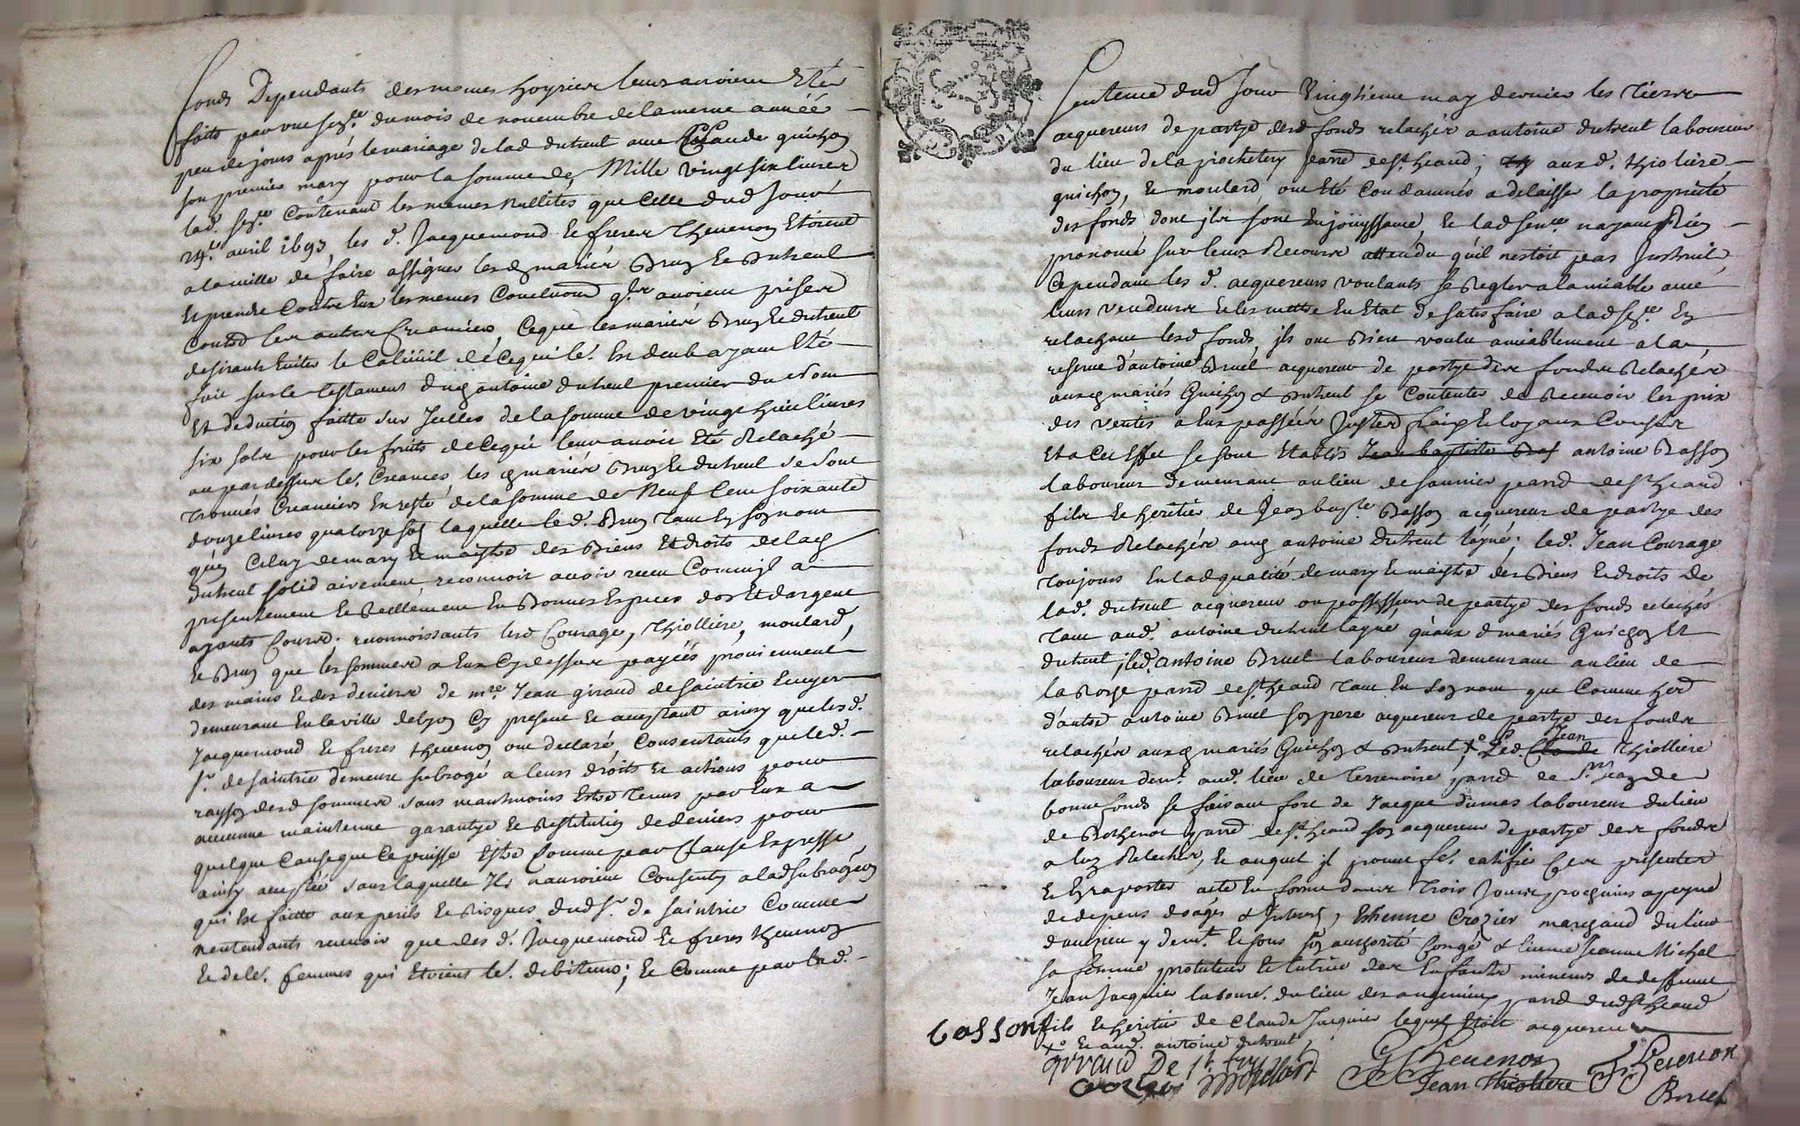 fonds Dependants des mesmes hoyries leurs avoient Eté
faits par une du mois de novembre de la meme année
peu de jours aprés le mariage de lad dutreul avec Claude guichon
son premier mary pour la somme de Mille vingt six livres
lad. contenant les mesmes nullités que celle dud jour
24e. avril 1693, les d. Jacquemond & freres Thevenon Etoient
a la veille de faire assigner lesd mariés Bruy & Dutreul
et prendre contre Eux les mesmes Conclusions avoient prises
contre les autres Creanciers Ceque les mariés Bruy & dutreul
desirants Eviter le de Cequi ayant Eté
fait sur le testament dud antoine dutreul premier du Nom
Et deduction faitte sur Icelles de la somme de vingt huit livres
six sols pour les fruits de Cequi leur avoit Eté Relaché
au par dessus Creances, les mariés Bruy & dutreul se sont
trouvés Creanciers En reste de la somme de Neuf Cent soixante
douze livres quatorze sols laquelle led. Bruy tant En son nom
qu'en Celuy de mary & maistre des Biens Et droits de lad
dutreul solidairement reconnoit avoir receu Comme a
presentement & reellement En Bonnes Especes dor Et dargent
ayants Cours. reconnoissants lesd Courage, Thiolliere, moulard,
& Bruy que les sommes a Eux Cy dessus payées proviennent
des mains & des deniers de mre. Jean giraud de saintrie Ecuyer
demeurant En la ville de lyon Cy present & acceptant ainsy que lesd.
Jacquemond & freres thevenon ont declaré, Consentants que led.
sr. de saintrie demeure subrogé a leurs droits & actions pour
rayson desd sommes sans neantmoins Estre tenus par Eux a
aucune maintenue garantye & restitution de deniers pour
quelque Cause que Ce puisse Estre Comme par Clause Expresse
ainsy acceptée sans laquelle Ils n'auroient Consenty a lad subrogation
qui Est faitte aux perils & Risques dud sr. de saintrie Comme
nentendants recevoir que des d. Jacquemond & freres thevenon
& de les. femmes qui Etoient les. debiteurs; & Comme par lad.
Sentence dud Jour Vingtieme may dernier les Tiers
acquereurs de partye desd fonds relachés a antoine dutreul laboureur
du lieu de la piochetiere parrd de st. heand, aux d. thioliere
guichon, & moulard ont Eté Condamnés a delaisser la proprieté
des fonds dont ils sont En jouyssance, & lad sence n'ayant Rien
prononcé sur leurs Recours attendu qu'il nestoit pas Instruit
Cependant les d. acquereurs voulants se Regler a lamiable avec
leurs vendeurs & les mettre En Etat de satisfaire a lad En
relachant lesd fonds, ils ont Bien voulu amiablement a la
reserve d'antoine Bruel acquereur de partye des fonds Relachés
auxd mariés Guichon & dutreul se Contenter de Recevoir les prix
des ventes a Eux passées Juster fraix & loyaux Cousts
Et a Cet Effet se sont Etablis Jean baptiste Bas antoine Basson
laboureur demeurant au lieu de saunier parrd de st. heand
fils & heritier de Jean bapte. Basson acquereur de partye des
fonds Relachés aud antoine Dutreul layné; led. Jean Courage
toujours En lad qualité de mary & maistre des Biens & droits de
lad. dutreul acquereur ou possesseur de partye des fonds relachés
tant aud. antoine dutreul layné qu'aux d mariés Guichon Et
dutreul, led. antoine Bruel laboureur demeurant au lieu de
la Roye parrd de st. heand tant En son nom que Comme herd
d'autre antoine Bruel son pere acquereur de partye des fonds
relachés aux d mariés Guichon & dutreul; Xo led Claude Jean Thiolliere
laboureur demt. aud. lieu de Terrenoire parrd de st. Jean de
bonnefonds se faisant fort de Jacque dumas laboureur du lieu
de parrd de st. heand son acquereur de partye des fonds
a luy Relachés, & auquel il promet fe. ratifié Ces presentes
& En raporter acte En forme dans trois Jours prochains a peyne
de depens domages & Interest, Ethienne Crozier marchand du lieu
d y demt. & sous son authorité Congé & licence Jeanne Michal
sa femme protuteur & tutrice des Enfants mineurs de deffunt
Jean Jacquier laboure. du lieu des parrd dud st. heand
fils & heritier de Claude Jacquier lequel Etoit acquereur
Xo & aud. antoine dutreul
bassont
Girraud De St. trie
corage moulard
G Thevenon
Jean thioliere
F. Thevenon
Bruel